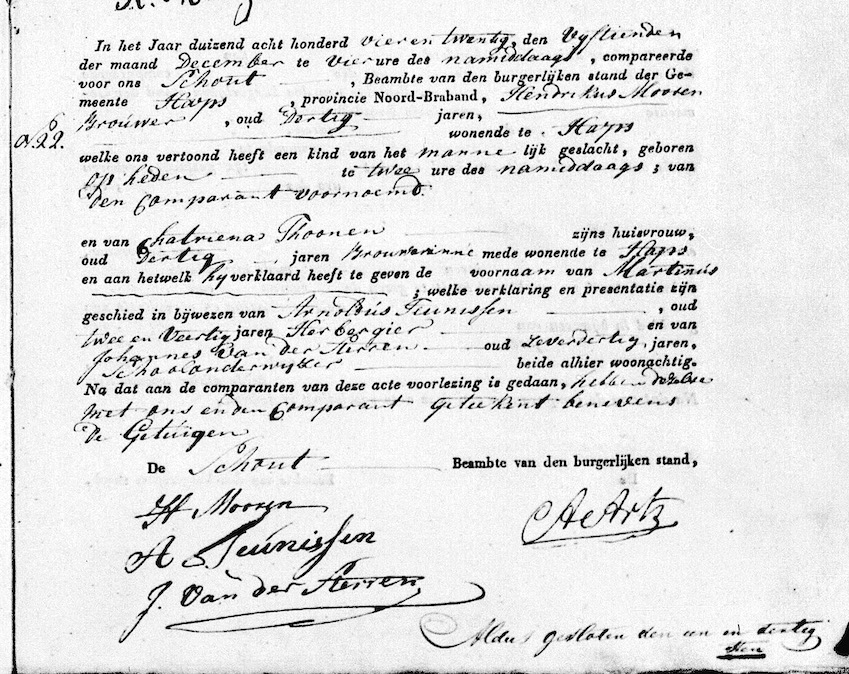 In het Jaar duizend acht honderd vier en twentig, den Vyftienden
der maand December te Vier ure des namiddaags, compareerde
voor ons Schout, Beambte van den burgerlijken stand der Ge-
meente Haps, provincie Noord-Braband, Hendrikus Mooren
Brouwer, oud Dertig jaren,
wonende te Haps
No. 22.
welke ons vertoond heeft een kind van het manne lijk geslacht, geboren
op heden te twee ure des namiddaags; van
Den Comparant voornoemd.
en van Chatriena Thoonen zijne huisvrouw,
oud Dertig jaren Brouwerinne mede wonende te Haps
en aan hetwelk hy verklaard heeft te geven de voornaam van Martinus
; welke verklaring en presentatie zijn
geschied in bijwezen van Arnoldus Teunissen, oud
twee en Veertig jaren Herbergier en van
Johannes Van der Sterren oud jaren,
Schoolonderwyzer beide alhier woonachtig.
Na dat aan de comparanten van deze acte voorlezing is gedaan, hebben dezelve
met ons en den Comparant geteekent benevens
De Getuigen
De Schout Beambte van den burgerlijken stand,
H Mooren
A Teunissen
AeArtz
J. Van der Sterren
Aldus gesloten den een en dertig
sten